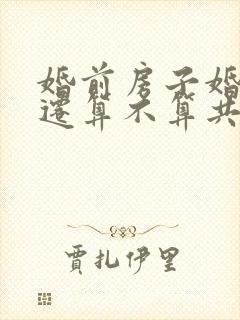 婚前房子婚
还算不算共
贾扎伊里